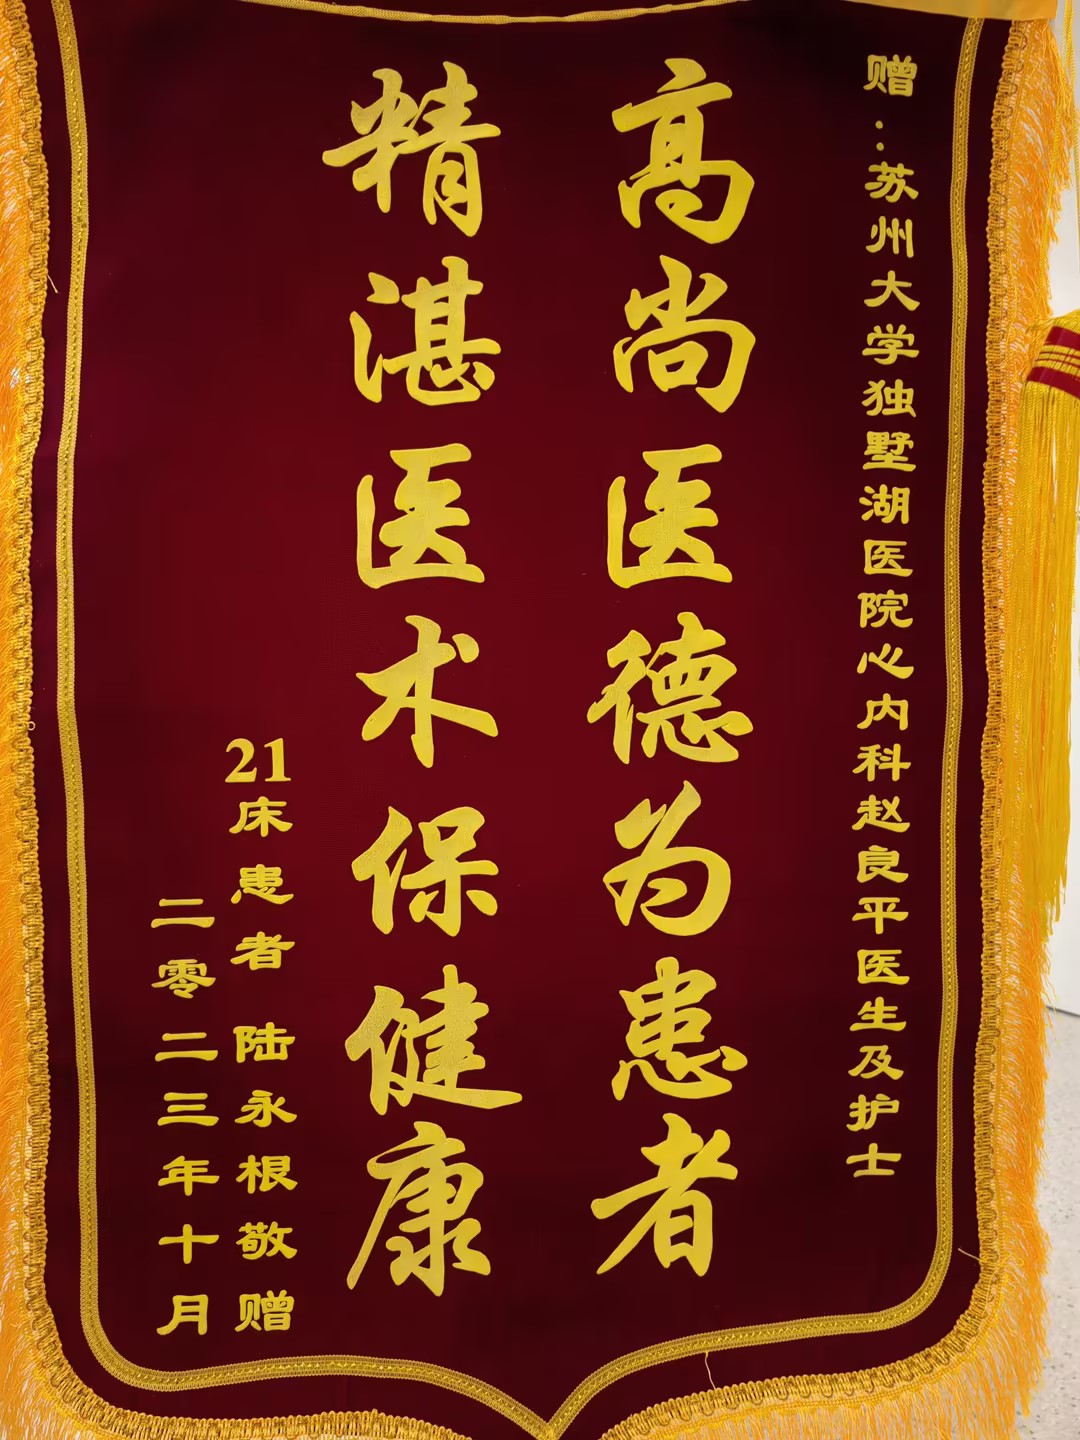 赠：苏州大学独墅湖医院心内科赵良平医生及护士
高尚医德为患者
精湛医术保健康
21床患者 陆永根敬赠
二零二三年十月